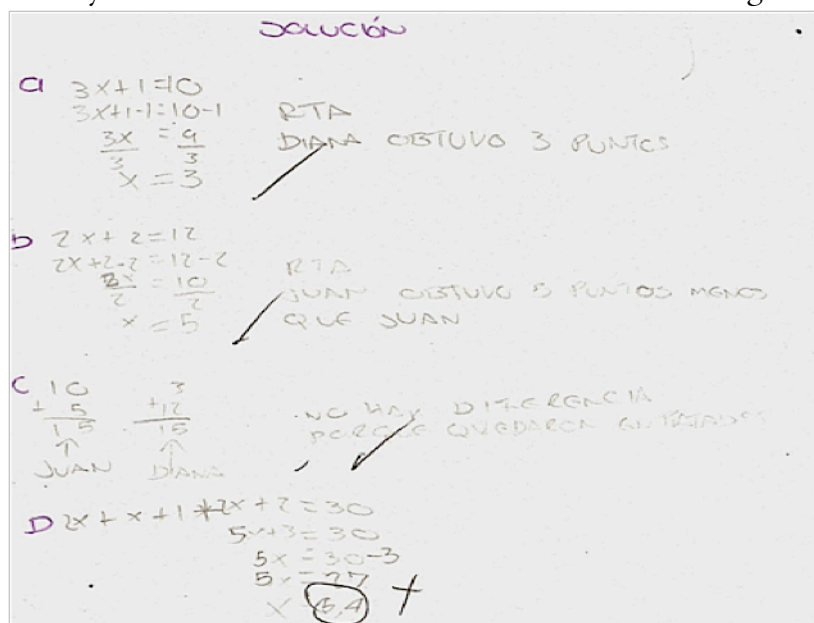 SOLUCIÓN
a 3x+1=10
3x+1-1=10-1
3x/3 = 9/3
x = 3
RTA
DIANA OBTUVO 3 PUNTOS
b 2x+2=12
2x+2-2=12-2
2x/2 = 10/2
x = 5
RTA
JUAN OBTUVO 5 PUNTOS MENOS
QUE JUAN
C 10 3
+ 5 +12
15 15
↑ ↑
JUAN DIANA
NO HAY DIFERENCIA
PORQUE QUEDARON EMPATADOS
D 2x + x + 1 + 2x + 2 = 30
5x+3=30
5x = 30-3
5x = 27
x 5,4